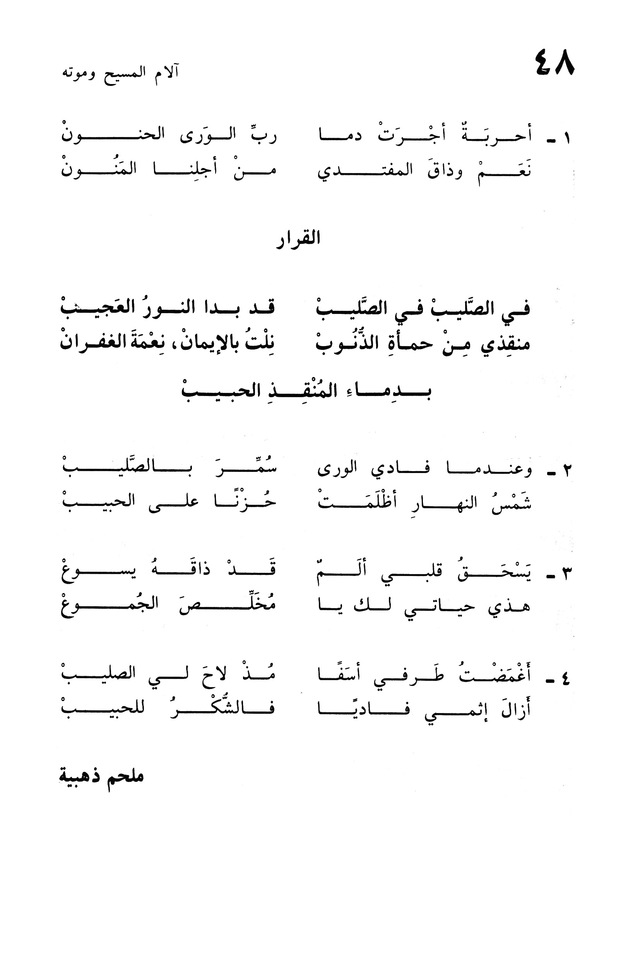 ٤٨
آلام المسيح وموته
١ - أحربَةٌ أجْرَتْ دما ربِّ الوَرى الحنونْ
نَعَمْ وذاقَ المفتدي منْ أجلِنا المَنُونْ
القرار
في الصَّليبْ في الصَّليبْ قد بدا النورُ العَجيبْ
منقِذي مِنْ حمأةِ الذُّنُوبْ نِلْتُ بالإيمانْ، نِعْمَةَ الغفرانْ
بدِماءِ المُنْقِذِ الحبيبْ
٢ - وعندما فادي الورى سُمِّرَ بالصَّليبْ
شَمْسُ النهارِ أظْلَمَتْ حُزْنًا على الحبيبْ
٣ - يَسْحَقُ قلبي ألَمٌ قَدْ ذاقَهُ يسوعْ
هذي حياتي لك يا مُخَلِّصَ الجُموعْ
٤ - أَغْمَضْتُ طَرفي أسَفًا مُذْ لاحَ لي الصليبْ
أزالَ إثمي فاديًا فالشُّكْرُ للحبيبْ
ملحم ذهبية